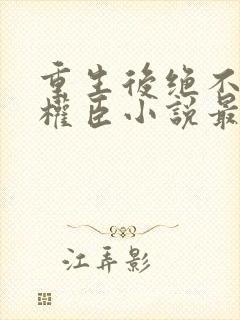 重生後绝不
權臣小說最
江弄影